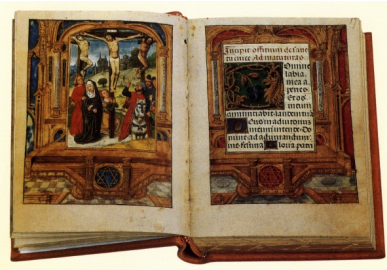 Incipit officium de sanc
ta cruce Ad matutinas.
Domine
labia
mea a
peries.
Et os
meum
annuntiabit laudem tua
Deus in adiutoriu
meum intende. Do
mine ad adiuvandum
me festina Gloria patri